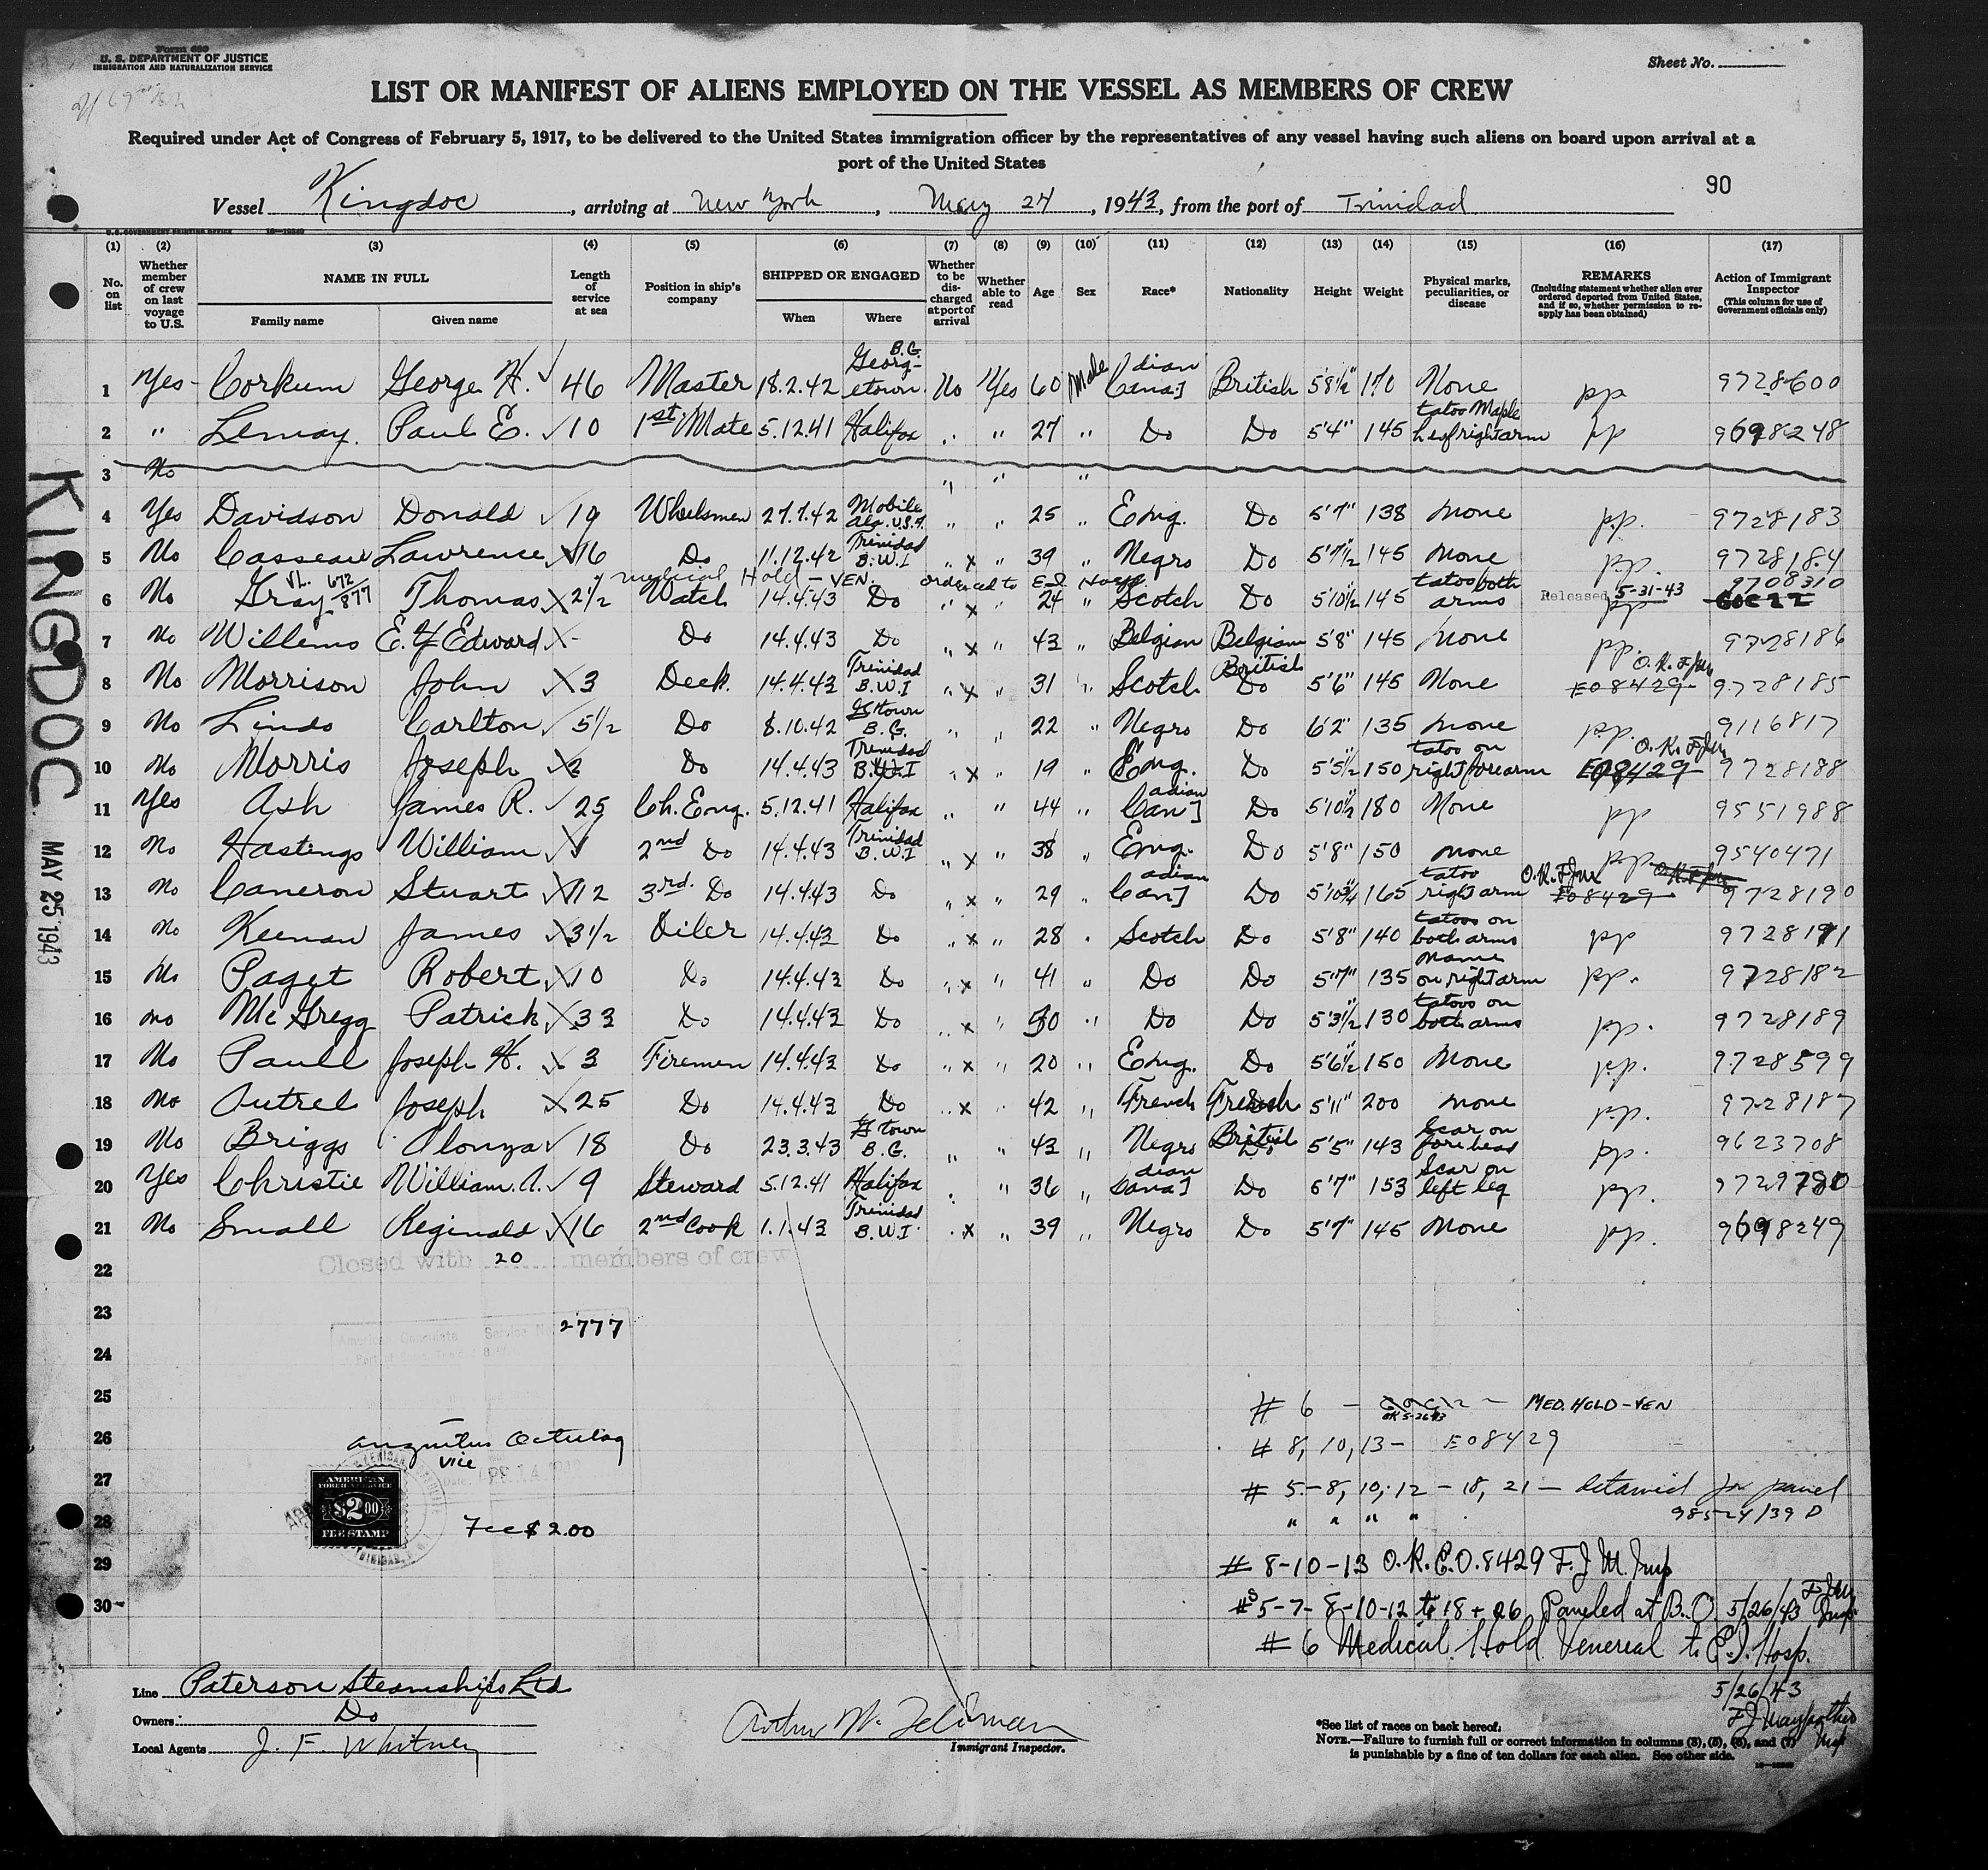 Form 680
U. S. DEPARTMENT OF JUSTICE
IMMIGRATION AND NATURALIZATION SERVICE
Sheet No.
LIST OR MANIFEST OF ALIENS EMPLOYED ON THE VESSEL AS MEMBERS OF CREW
Required under Act of Congress of February 5, 1917, to be delivered to the United States immigration officer by the representatives of any vessel having such aliens on board upon arrival at a
port of the United States
90
Vessel Kingdoc, arriving at New York, May 24, 1943, from the port of Trinidad
U. S. GOVERNMENT PRINTING OFFICE
(1) (2) (3) (4) (5) (6) (7) (8) (9) (10) (11) (12) (13) (14) (15) (16) (17)
No. on list Whether member of crew on last voyage to U.S. NAME IN FULL Family name Given name Length of service at sea Position in ship's company SHIPPED OR ENGAGED When Where Whether to be discharged at port of arrival Whether able to read Age Sex Race* Nationality Height Weight Physical marks, peculiarities, or disease REMARKS (Including statement whether alien ever ordered deported from United States, and if so, whether permission to re-apply has been obtained) Action of Immigrant Inspector (This column for use of Government officials only)
1 Yes Corkum George H. 46 Master 18.2.42 Georgetown B.G. No Yes 60 Male Canadian British 5'8½" 170 None pp 9728600
2 " Lemay. Paul E. 10 1st Mate 5.12.41 Halifax " " 27 " Do Do 5'4" 145 tatoo Maple right arm pp 9698248
3 No " " "
4 Yes Davidson Donald 19 Wheelsmen 27.7.42 Mobile Ala. U.S.A. " " 25 " Eng. Do 5'7" 138 None p.p. 9728183
5 No Casseau Lawrence 16 Do 11.12.42 Trinidad B.W.I " x " 39 " Negro Do 5'7½ 145 None p.p. 9728184
medical Hold - VEN. ordered to E.I. Hosp.
6 No Gray VL. 672/877 Thomas 2½ Watch 14.4.43 Do " x " 24 " Scotch Do 5'10½ 145 tatoo both arms Released 5-31-43 pp 9708310
7 No Willems E. Edward - Do 14.4.43 Do " x " 43 " Belgian Belgian 5'8" 145 None pp. 9728186
8 No Morrison John 3 Deck. 14.4.43 Trinidad B.W.I " x " 31 " Scotch British Do 5'6" 145 None E08429 9728185
9 No Linds Carlton 5½ Do 8.10.42 G'town B.G. " " 22 " Negro Do 6'2" 135 None pp. 9116817
10 No Morris Joseph 2 Do 14.4.43 Trinidad B.W.I " x " 19 " Eng. Do 5'5½ 150 tatoo on right forearm E08429 9728188
11 Yes Ash James R. 25 Ch. Eng. 5.12.41 Halifax " " 44 " Canadian Do 5'10½ 180 None pp 9551988
12 No Hastings William 2nd Do 14.4.43 Trinidad B.W.I " x " 38 " Eng. Do 5'8" 150 None pp 9540471
13 No Cameron Stuart 12 3rd. Do 14.4.43 Do " x " 29 " Canadian Do 5'10¾ 165 tatoo right arm E08429 9728190
14 No Keenan James 3½ Oiler 14.4.43 Do " x " 28 " Scotch Do 5'8" 140 tatoos on both arms pp 9728191
15 No Paget Robert 10 Do 14.4.43 Do " x " 41 " Do Do 5'7" 135 name on right arm pp. 9728182
16 No McGregg Patrick 33 Do 14.4.43 Do " x " 50 " Do Do 5'3½ 130 tatoos on both arms pp. 9728189
17 No Paull Joseph H. 3 Firemen 14.4.43 Do " x " 20 " Eng. Do 5'6½ 150 None p.p. 9728599
18 No Autrel Joseph 25 Do 14.4.43 Do " x " 42 " French French 5'11" 200 None p.p. 9728187
19 No Briggs Alonza 18 Do 23.3.43 G'town B.G. " " 43 " Negro British 5'5" 143 Scar on forehead pp. 9623708
20 Yes Christie William. A. 9 Steward 5.12.41 Halifax " " 36 " Canadian Do 6'7" 153 Scar on left leg pp.
21 No Small Reginald 16 2nd Cook 1.1.43 Trinidad B.W.I. " x " 39 " Negro Do 5'7" 145 None pp. 9698249
Closed with 20 members of crew
22
23
American Consulate Service No. 2777
24
25
# 6 - MED. HOLD-VEN
26
# 8, 10, 13 - E08429
vice
27
# 5-8, 10, 12 - 18, 21 - detained for panel
98524/39 D
28
AMERICAN FOREIGN SERVICE $2.00 FEE STAMP
Fee $ 2.00
29
# 8-10-13 O.K. E.O. 8429 F.J.M. Insp
30
#s 5-7-8-10-12 to 18 + 26 Paneled at B.O. 5/26/43
# 6 Medical Hold Venereal to E.I. Hosp.
5/26/43
Line Paterson Steamships Ltd
Owners Do
Local Agents J. F. Whitney
Immigrant Inspector.
*See list of races on back hereof.
NOTE.—Failure to furnish full or correct information in columns (3), (5), (6), and (7)
is punishable by a fine of ten dollars for each alien. See other side.
KINGDOC
MAY 25 1943